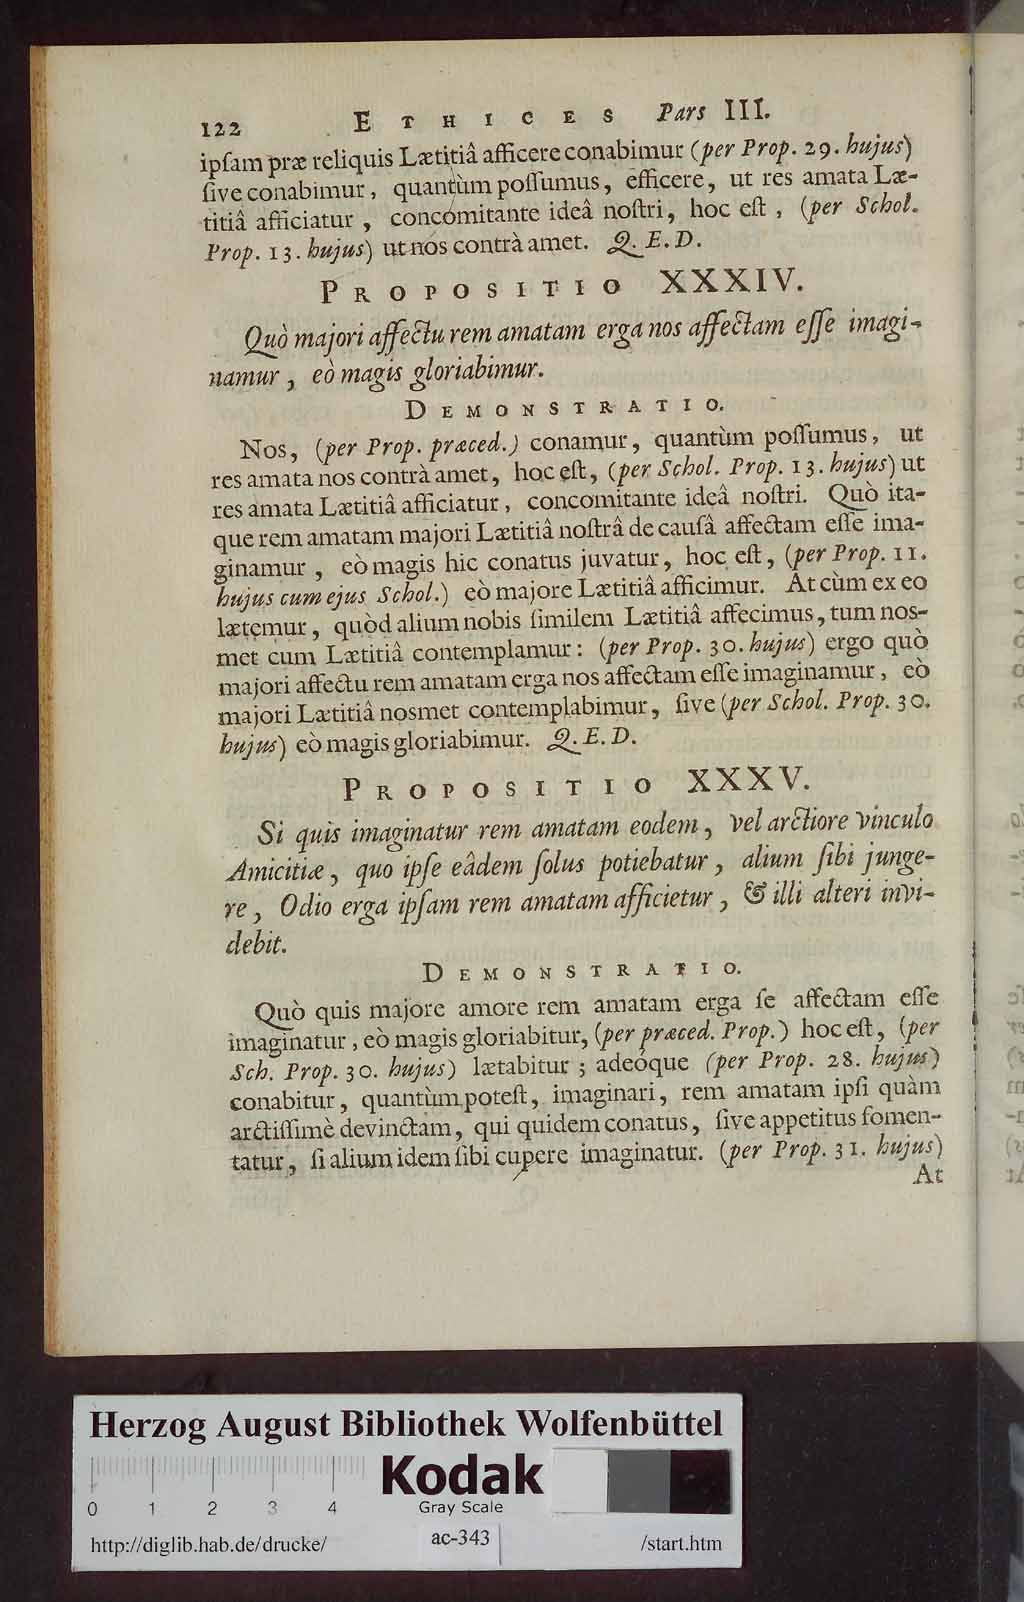 122 ETHICES Pars III.
ipſam præ reliquis Lætitiâ afficere conabimur (per Prop. 29. hujus)
ſive conabimur, quantùm poſſumus, efficere, ut res amata Læ-
titiâ afficiatur, concomitante ideâ noſtri, hoc eſt, (per Schol.
Prop. 13. hujus) ut nos contrà amet. Q. E. D.
PROPOSITIO XXXIV.
Quò majori affectu rem amatam erga nos affectam eſſe imagi-
namur, eò magis gloriabimur.
DEMONSTRATIO.
Nos, (per Prop. præced.) conamur, quantùm poſſumus, ut
res amata nos contrà amet, hoc eſt, (per Schol. Prop. 13. hujus) ut
res amata Lætitiâ afficiatur, concomitante ideâ noſtri. Quò ita-
que rem amatam majori Lætitiâ noſtrâ de cauſâ affectam eſſe ima-
ginamur, eò magis hic conatus juvatur, hoc eſt, (per Prop. 11.
hujus cum ejus Schol.) eò majore Lætitiâ afficimur. At cùm ex eo
lætemur, quòd alium nobis ſimilem Lætitiâ affecimus, tum noſ-
met cum Lætitiâ contemplamur: (per Prop. 30. hujus) ergo quò
majori affectu rem amatam erga nos affectam eſſe imaginamur, eò
majori Lætitiâ noſmet contemplabimur, ſive (per Schol. Prop. 30.
hujus) eò magis gloriabimur. Q. E. D.
PROPOSITIO XXXV.
Si quis imaginatur rem amatam eodem, vel arctiore vinculo
Amicitiæ, quo ipſe eâdem ſolus potiebatur, alium ſibi junge-
re, Odio erga ipſam rem amatam afficietur, & illi alteri invi-
debit.
DEMONSTRATIO.
Quò quis majore amore rem amatam erga ſe affectam eſſe
imaginatur, eò magis gloriabitur, (per præced. Prop.) hoc eſt, (per
Sch. Prop. 30. hujus) lætabitur; adeóque (per Prop. 28. hujus)
conabitur, quantùm poteſt, imaginari, rem amatam ipſi quàm
arctiſſimè devinctam, qui quidem conatus, ſive appetitus fomen-
tatur, ſi alium idem ſibi cupere imaginatur. (per Prop. 31. hujus)
At
Herzog August Bibliothek Wolfenbüttel
Kodak
0 1 2 3 4 Gray Scale
http://diglib.hab.de/drucke/ ac-343 /start.htm